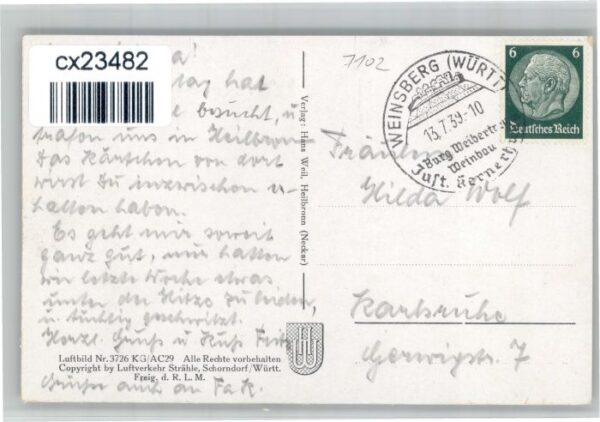 cx23482
7102
tag hat
besucht, u.
trafen uns in Heilbronn
Das Kärtchen von dort
wirst Du inzwischen er-
halten haben.
Es geht mir soweit
ganz gut, nur hatten
wir letzte Woche etwas
unter der Hitze zu leiden,
u. tüchtig geschwitzt.
Herzl. Gruß u. Kuß Fritz
Luftbild Nr. 3726 KG/AC29 Alle Rechte vorbehalten
Copyright by Luftverkehr Strähle, Schorndorf/Württ.
Freig. d. R. L. M.
Grüße auch an
Verlag: Hans Weil, Heilbronn (Neckar)
WEINSBERG (WÜRTT)
13.7.39.-10
Burg Weibertr
Weinbau
Just. Kerner
6 6
Deutsches Reich
Fräulein
Hilda Wolf
Karlsruhe
Gerwigstr. 7